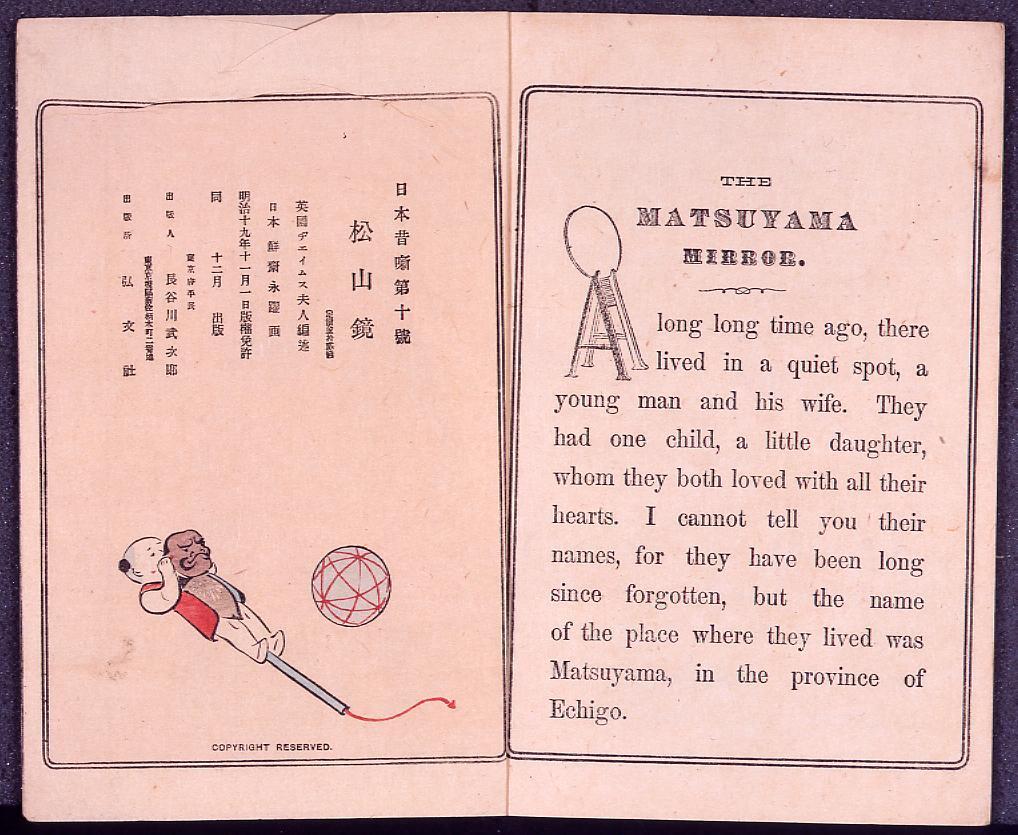 日本昔噺第十號
松山鏡
英國ヂエイムス夫人編述
日本 鮮齋永濯画
明治十九年十一月一日版權免許
同 十二月 出版
東京府平民
出版人 長谷川武次郎
出版所 弘文社
COPYRIGHT RESERVED.
THE
MATSUYAMA
MIRROR.
A long long time ago, there
lived in a quiet spot, a
young man and his wife. They
had one child, a little daughter,
whom they both loved with all their
hearts. I cannot tell you their
names, for they have been long
since forgotten, but the name
of the place where they lived was
Matsuyama, in the province of
Echigo.